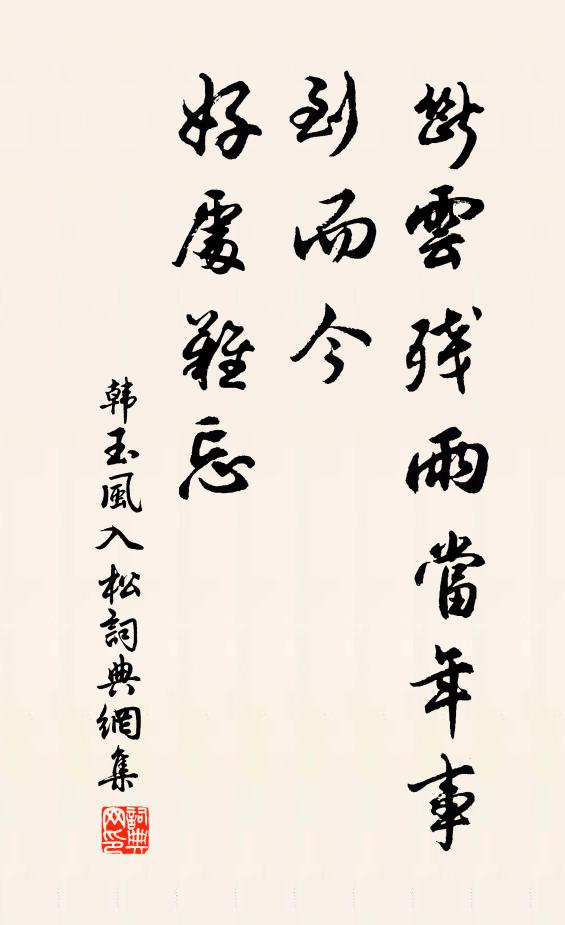 斷雲殘雨當年事
到而今
好處難忘
韩玉風入松詞典網集
詞典网印